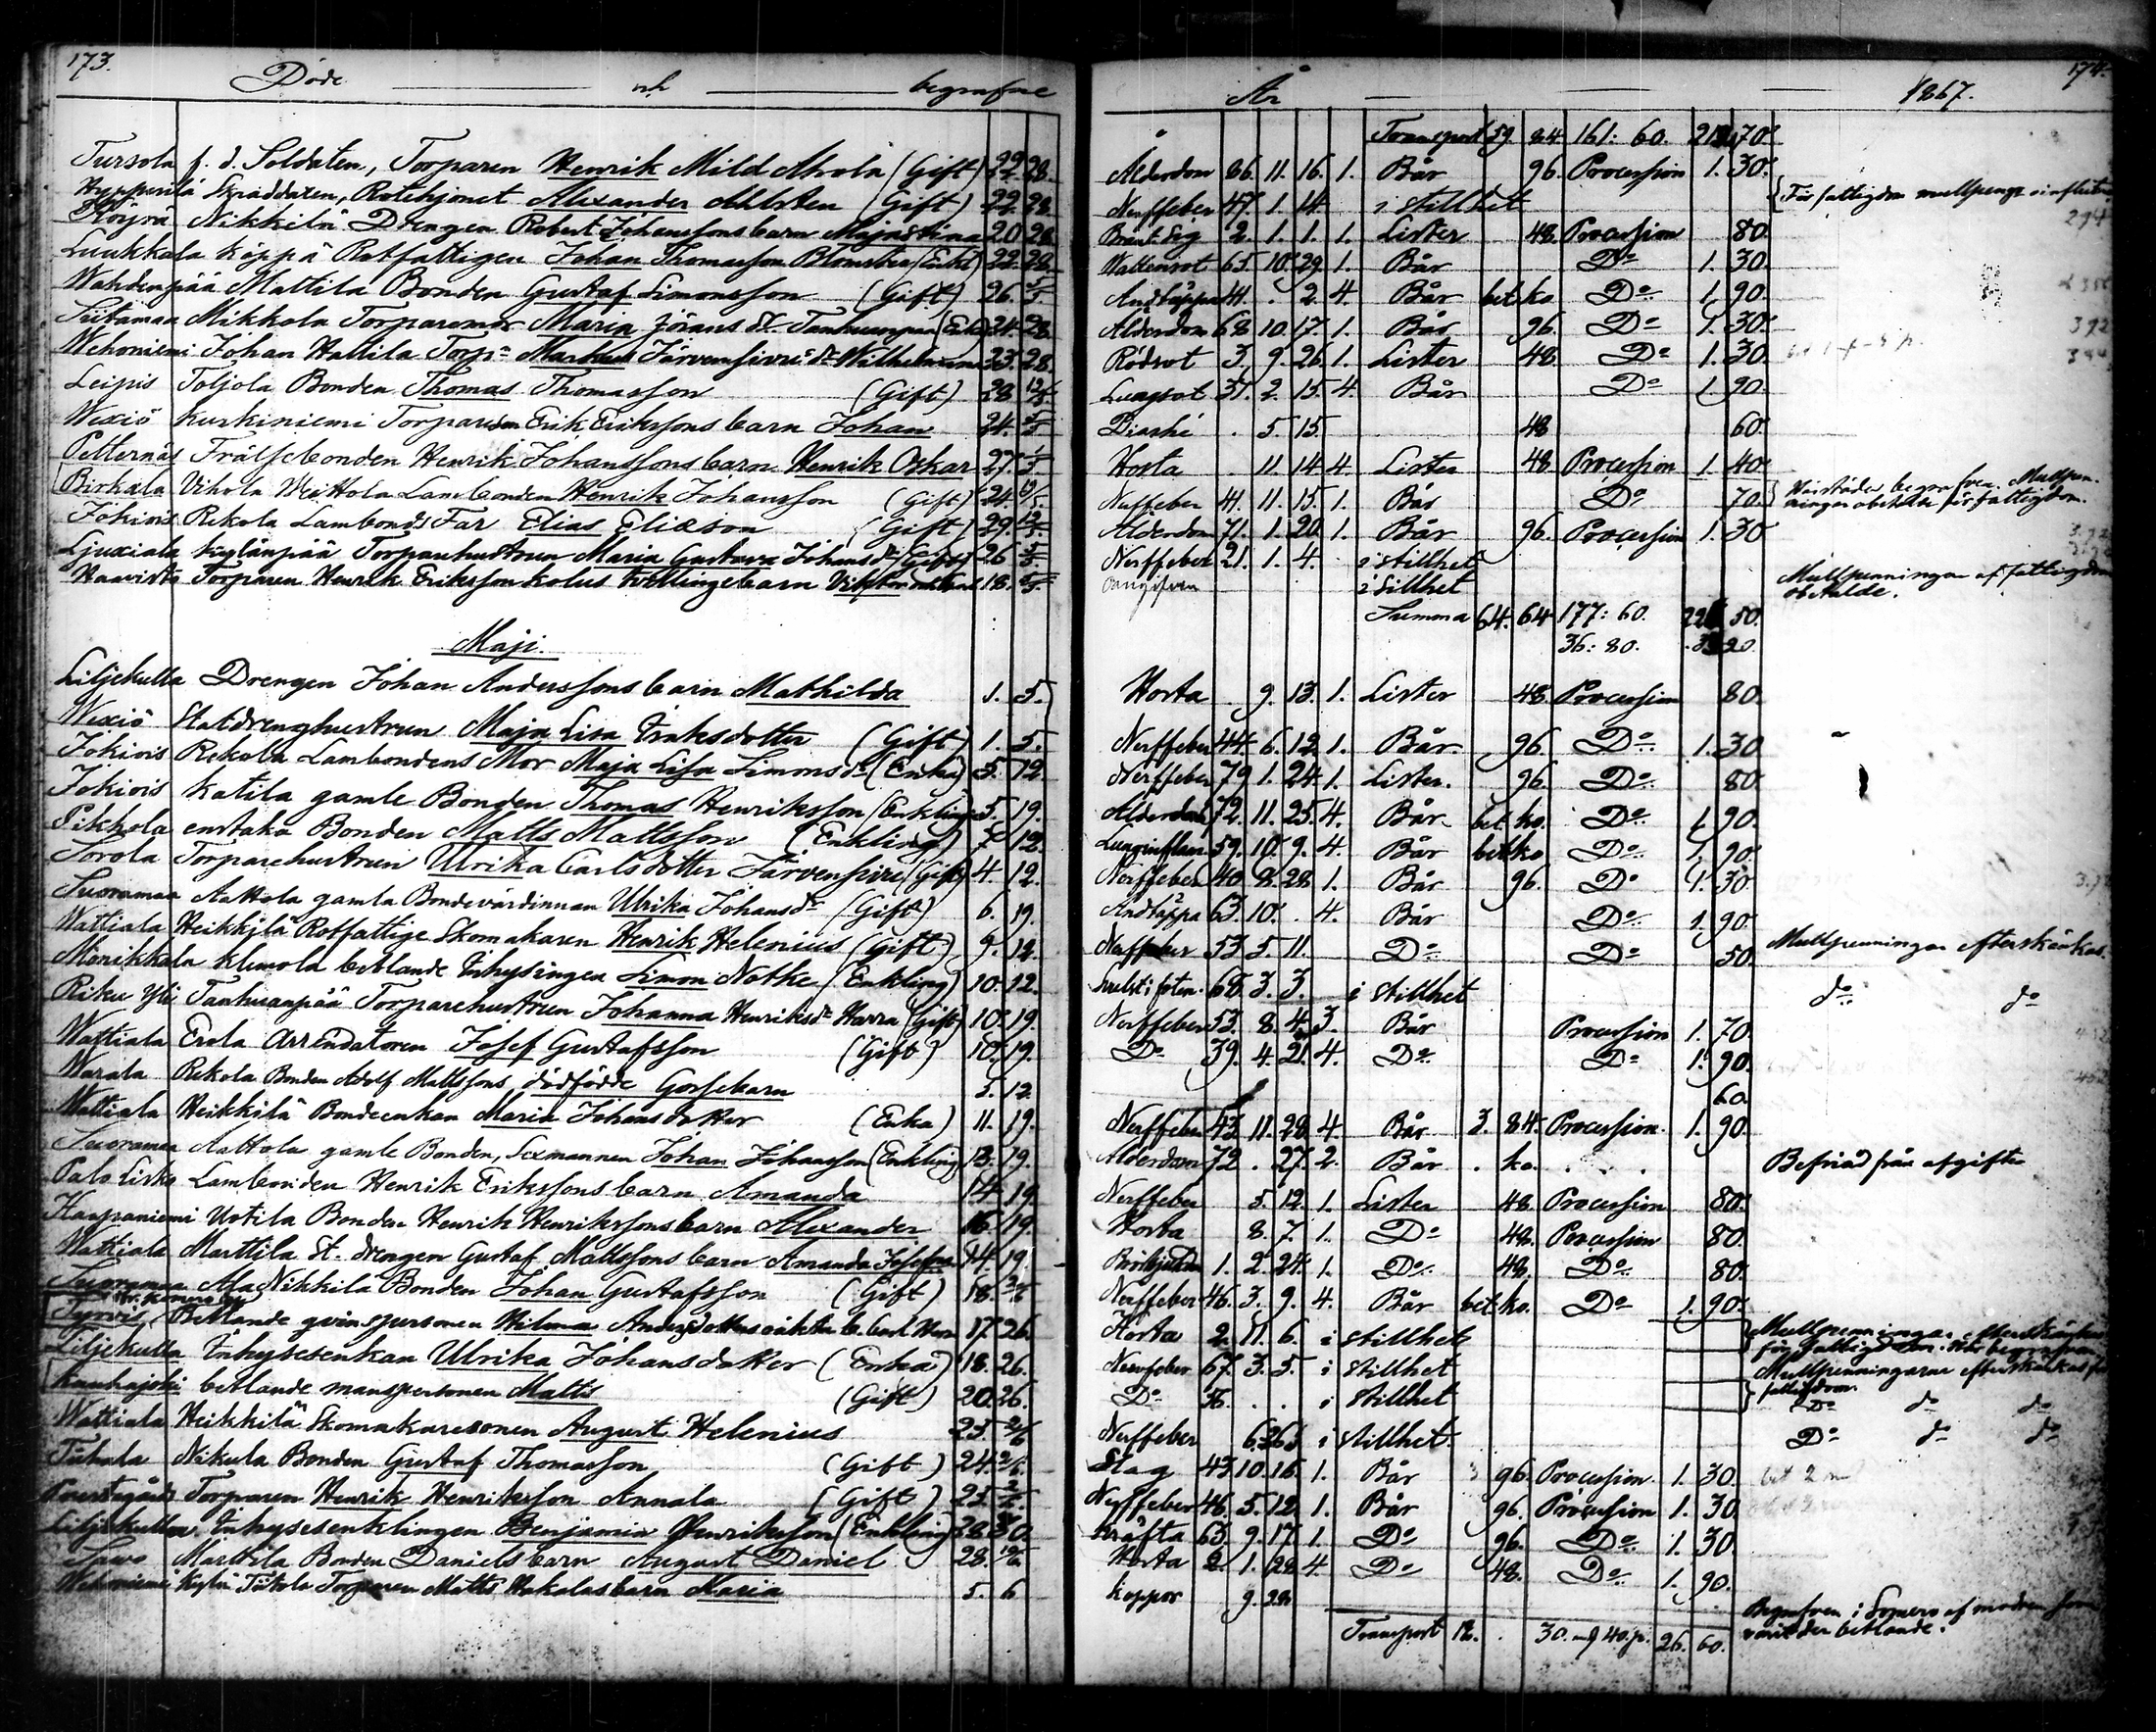 173.
Döde och begrafne
Tursola f. d. Soldaten, Torparen Henrik Mild Ahola (Gift) 22. 28.
Hyppärilä Skräddaren, Rotehjonet Alexander Ahlsten (Gift) 22. 28.
Nikkilä Drengen Robert Johanssons barn Maja Stina 20 28
Luukkala Köppä Rotfattigen Johan Thomasson (Enkl) 22. 28.
Wahdenpää Mattila Bonden Gustaf Simonsson (Gift) 26. 5/5
Siitamaa Mikkola Torparemor Maria Jörans dr Tanhuanpää (Enka) 24. 28.
Wehoniemi Johan Hattila Torp. Markus Järvensivus dr Wilhelmina 23. 28.
Leipis Toljola Bonden Thomas Thomasson (Gift) 28 12/5
Wexiö Kurkiniemi Torparesson Erik Erikssons barn Johan 24. 5/5
Petternäs Frälsebonden Henrik Johanssons barn Henrik Oskar 27. 5/5.
Birkala Vihola Lambonden Henrik Johansson (Gift) 24.
Jokiois Rekola Lambonds Far Elias Eliæson (Gift) 29. 12/5.
Ljuxiala Kylänpää Torparehustrun Maria Gustava Johansdr (Gift) 26 5/5.
Haavisto Torparen Henrik Eriksson Kolus tvillingebarn 18. 5/5.
Maji.
Liljekulla Drengen Johan Anderssons barn Mathilda 1. 5.
Wexiö Statdrenghustrun Maja Lisa Eriksdotter (Gift) 1. 5.
Jokiois Rekola Lambondens Mor Maja Lisa Simonsdr (Enka) 5. 12.
Jokiois Katila gamle Bonden Thomas Henriksson (Enkling) 5. 19.
Pikkola enstaka Bonden Matts Mattsson (Enkling) 7. 12.
Sorola Torparehustrun Ulrika Carlsdotter Järvensivu (Gift) 4. 12.
Suoramaa Aattola gamla Bondevärdinnan Ulrika Johansdr (Gift) 6. 19.
Wattiala Heikkilä Rotfattige Skomakaren Henrik Helenius (Gift) 9. 12.
Mönikkala Klemola betlande Inhysingen Simon Notke (Enkling) 10. 12.
Riku Yli Tanhuanpää Torparehustrun Johanna Henriksdr Harra (Gift) 10. 19.
Wattiala Erola Arrendatoren Josef Gustafsson (Gift) 10. 19.
Warala Rekola Bonden Adolf Mattssons dödfödde Gossebarn 5. 12.
Wattiala Heikkilä Bondeenkan Maria Johansdotter (Enka) 11. 19.
Suoramaa Aattola gamle Bonden, Sexmannen Johan Johansson (Enkling) 13. 19.
Palo Lisko Lambonden Henrik Erikssons barn Amanda 14. 19.
Haapaniemi Uotila Bonden Henrik Henrikssons barn Alexander 16. 19.
Wattiala Marttila St. drengen Gustaf Mattssons barn Amanda Josefina 14. 19.
Suoramaa Ala Nikkilä Bonden Johan Gustafsson (Gift) 18.
Tyrvis, Betlande qvinspersonen Hilma Andersdotters oäkta b. Carl 17. 26.
Liljekulla Inhysesenkan Ulrika Johansdotter (Enka) 18. 26.
Kauhajoki betlande manspersonen Matts (Gift) 20. 26.
Wattiala Heikkilä Skomakaresonen August Helenius 23. 2/6
Tiihala Nikula Bonden Gustaf Thomasson (Gift) 24. 2/6.
Prestegårds Torparen Henrik Henriksson Annala (Gift) 25. 2/6.
Liljekulla Inhysesenklingen Benjamin Henriksson (Enkling) 28. 30.
Sawo Marttila Bonden Daniels barn August Daniel 28.
Wehoniemi Kylä Tiitola Torparen Matts Hakalas barn Maria 5. 6
174.
År 1867.
Transport 59. 84 161: 60. 70.
Ålderdom 66. 11. 16. 1. Bår 96. Procession 1. 30.
Nerffeber 47. 1. 14. i stillhet För fattigdom mullpenge
2. 1. 1. 1. Lister 48. Procession 80.
Wattensot 65. 10. 29. 1. Bår Do 1. 30.
Andtäppa 41. . 2. 4. Bår bet ko Do 1. 90.
Ålderdom 68. 10. 17. 1. Bår 96. Do 1. 30.
Rödsot 3. 9. 26. 1. Lister 48. Do 1. 30.
Lungsot 37. 2. 15. 4. Bår Do 1. 90.
Diarhé . 5. 15. 48 60.
Hosta . 11. 14. 4. Lister 48. Procession 1. 40.
Nerffeber 41. 11. 15. 1. Bår Do 70. Härstädes begrafven. Mullpen-
ningar obetalte för fattigdom.
Ålderdom 71. 1. 20. 1. Bår 96. Procession 1. 30
Nerffeber 21. 1. 4. i stillhet
Oangifven i stillhet Mullpenningar af fattigdom
obetalde.
Summa 64. 64 177: 60. 50.
36: 80. 20.
Hosta . 9. 13. 1. Lister 48. Procession 80.
Nerffeber 44. 6. 12. 1. Bår 96. Do 1. 30
Nerffeber 79. 1. 24. 1. Lister. 96. Do 80.
Ålderdom 72. 11. 25. 4. Bår bet ko. Do 1. 90.
Lunginflam 59. 10. 9. 4. Bår bet ko Do 1. 90.
Nerffeber 40. 8. 28. 1. Bår 96. Do 1. 30
Andtäppa 63. 10. . 4. Bår Do 1. 90.
Nerffeber 53. 5. 11. Do Do 50. Mullpenningar efterskänkas.
68. 3. 3. i stillhet do do
Nerffeber 53. 8. 4. 3. Bår Procession 1. 70.
Do 39. 4. 21. 4. Do Do 1. 90.
60.
Nerffeber 43. 11. 28. 4. Bår 3. 84. Procession. 1. 90.
Ålderdom 72. . 27. 2. Bår . ko. Befriad från afgifter
Nerffeber 5. 12. 1. Lister 48. Procession 80.
Hosta 8. 7. 1. Do 48. Procession 80.
1. 2. 24. 1. Do 48. Do 80.
Nerffeber 46. 3. 9. 4. Bår bet ko. Do 1. 90.
Hosta 2. 11. 6. i stillhet Mullpenningar efterskänkas
för fattigdom. Här begrafven
Nervfeber 67. 3. 5. i stillhet Mullpenningarne efterskänkas för
fattigdom.
Do 36. . . i stillhet Do do do
Nerffeber i stillhet. Do do do
Slag 43. 10. 16. 1. Bår 96. Procession. 1. 30.
Nerffeber 46. 5. 12. 1. Bår 96. Procession 1. 30.
Kräfta 63. 9. 17. 1. Do 96. Do 1. 30.
Hosta 2. 1. 28. 4. Do 48. Do 1. 90.
Koppor 9. 28. Begrafven i Somero af modren som
varit der betlande.
Transport 12. . 30. 40. p. 26. 60.